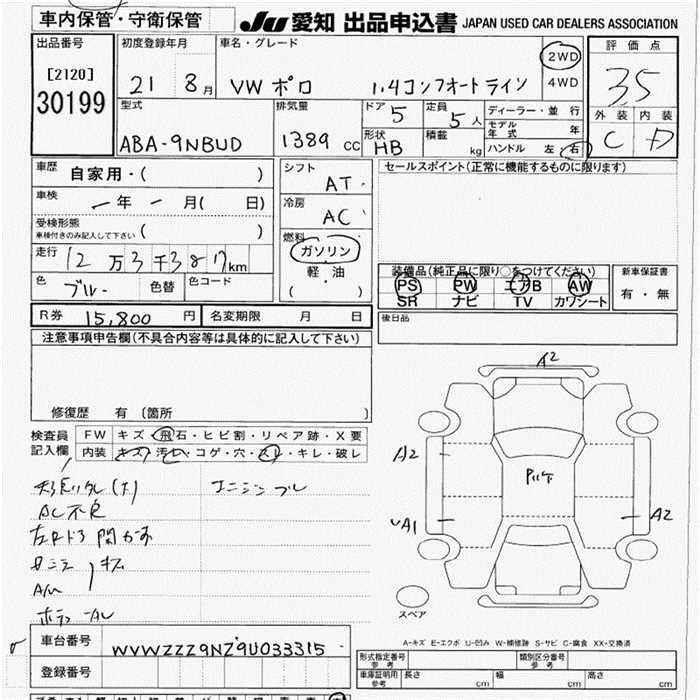 車内保管・守衛保管
JU 愛知 出品申込書 JAPAN USED CAR DEALERS ASSOCIATION
出品番号
[2120]
30199
初度登録年月
21 8月
車名・グレード
VW ポロ 1.4コンフォートライン
2WD
4WD
評価点
3.5
外装 内装
C D
型式
ABA-9NBUD
排気量
1389 cc
ドア 5
定員 5人
形状 HB
積載 kg
ディーラー・並行
モデル年式 年
ハンドル 左 右
車歴 自家用・( )
車検 ー年ー月( 日)
受検形態
車検付きのみ記入して下さい ( )
走行 12万3千387km
色 ブルー 色替 色コード
シフト AT
冷房 AC
燃料
ガソリン
軽・油
( )
セールスポイント(正常に機能するものに限ります)
装備品(純正品に限り○をつけてください)
PS PW エアB AW
SR ナビ TV カワシート
新車保証書
有・無
R券 15,800 円 名変期限 月 日
後日品
注意事項申告欄(不具合内容等は具体的に記入して下さい)
修復歴 有(箇所 )
検査員記入欄
FW キズ・飛石・ヒビ割・リペア跡・X要
内装 キズ・汚レ・コゲ・穴・スレ・キレ・破レ
エンジンブレ
AC不良
A2
A2
UA1
A2
スペア
A-キズ E-エクボ U-凹み W-補修跡 S-サビ C-腐食 XX-交換済
車台番号 WVWZZZ9NZ9U033315
登録番号
形式指定番号 参考
類別区分番号 参考
車庫証明用 参考 長さ cm 幅 cm 高さ cm